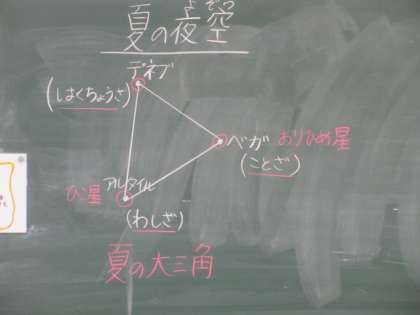 よ ぞら
夏の夜空
デネブ
(はくちょうざ)
ベガ おりひめ星
(ことざ)
ひこ星 アルタイル
(わしざ)
夏の大三角